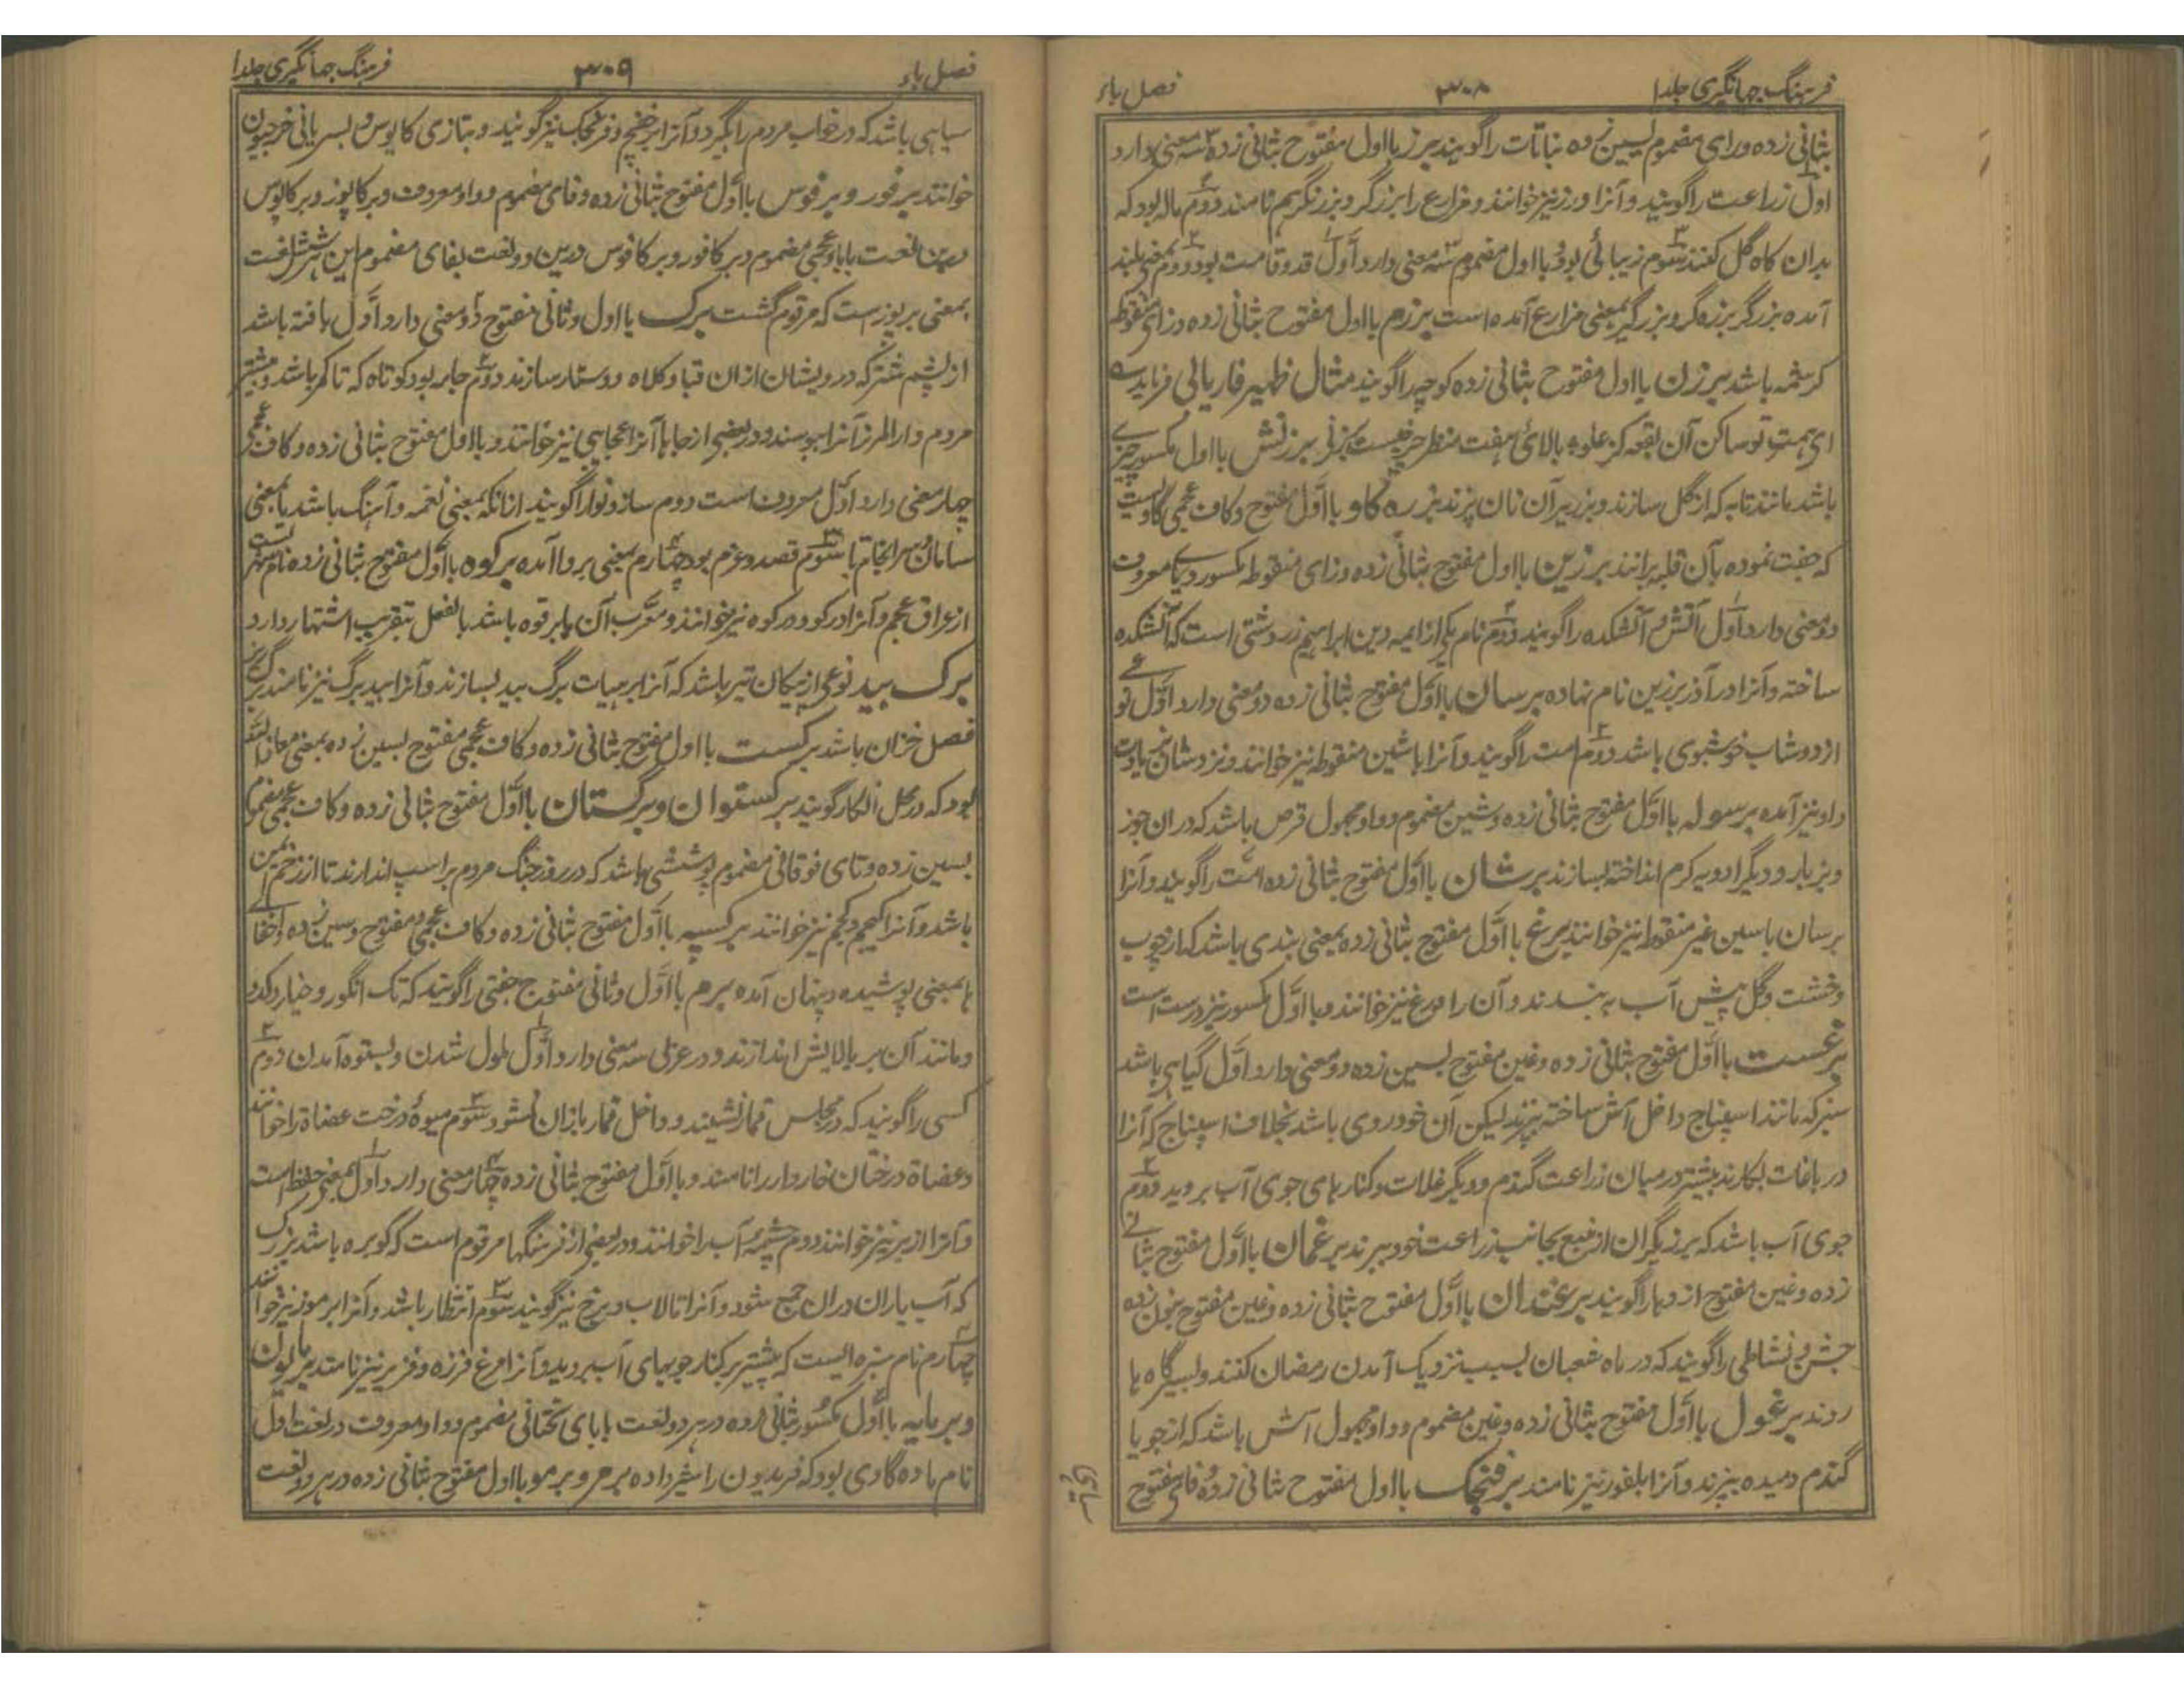 فرہنگ جہانگیری جلد ا
۳۰۸
فصل باء
بثانی زده و رای مضموم بسین زده نباتات را گویند برز با اول مفتوح بثانی زده سه معنی دارد
اول زراعت را گویند و آنرا ورز نیز خوانند و مزارع را برزگر و برزیگر هم نامند دوم ماله بود که
بدان کاه گل کنند سوم زیبائی بود و با اول مضموم سه معنی دارد اول قد و قامت بود دوم بمعنی بلند
آمده برزگر برزه گر و برزیگر بمعنی مزارع آمده است برزم با اول مفتوح بثانی زده و زای منقوطه
کرشمه باشد برزن با اول مفتوح بثانی زده کوچه را گویند مثال ظهیر فاریابی فرماید
ای همت تو ساکن آن بقعه کز علو بالای هفت منظر چرخست برزنی برزنش با اول مکسور چیزی
باشد مانند تابه که از گل سازند و بر زبر آن نان پزند برزه گاو با اول مفتوح و کاف عجمی گاویست
که جفت نموده بآن قلبه برانند برزین با اول مفتوح بثانی زده و زای منقوطه مکسور و یای معروف
دو معنی دارد اول آتش و آتشکده را گویند دوم نام یکی از ایمه دین ابراهیم زردشتی است که آتشکده
ساخته و آنرا در آذر برزین نام نهاده برسان با اول مفتوح بثانی زده دو معنی دارد اول نوعی
از دوشاب خوشبوی باشد دوم امت را گویند و آنرا با شین منقوطه نیز خوانند
و او نیز آمده برسوله با اول مفتوح بثانی زده و شین مضموم و واو مجهول قرص باشد که در ان جوز
و بزیار و دیگر ادویه گرم انداخته بسازند برشان با اول مفتوح بثانی زده امت را گویند و آنرا
برسان با سین غیر منقوط نیز خوانند برغ با اول مفتوح بثانی زده بمعنی بندی باشد که از چوب
و خشت و گل پیش آب به بندند و آن را ورغ نیز خوانند و با اول مکسور نیز درست است
برغست با اول مفتوح بثانی زده و غین مفتوح بسین زده دو معنی دارد اول گیاهی باشد
سبز که مانند اسپناج داخل آش ساخته بپزند لیکن آن خودروی باشد بخلاف اسپناج که آنرا
در باغات بکارند بیشتر در میان زراعت گندم و دیگر غلات و کنارهای جوی آب بروید دوم
جوی آب باشد که برزیگران از منبع بجانب زراعت خود ببرند برغمان با اول مفتوح بثانی
زده و غین مفتوح اژدها را گویند برغندان با اول مفتوح بثانی زده و غین مفتوح بنون زده
جشن و نشاطی را گویند که در ماه شعبان بسبب نزدیک آمدن رمضان کنند و بسیرگاه ها
روند برغول با اول مفتوح بثانی زده و غین مضموم و واو مجهول آش باشد که از جو یا
گندم دمیده بپزند و آنرا بلغور نیز نامند برفنجک با اول مفتوح بثانی زده و فای مفتوح
سیاهی
فصل باء
۳۰۹
فرہنگ جہانگیری جلد ا
سیاهی باشد که در خواب مردم را بگیرد و آنرا برخفج و فرنجک نیز گویند و بتازی کابوس و بسریانی خرجیون
خوانند برفور و برفوس با اول مفتوح بثانی زده و فای مضموم و واو معروف و برکاپوز و برکاپوس
درین لغت با باء عجمی مضموم و برکافور و برکافوس درین دو لغت بفای مضموم این هر شش لغت
بمعنی برپوز است که مرقوم گشت برک با اول و ثانی مفتوح دو معنی دارد اول بافته باشد
از پشم شتر که درویشان از ان قبا و کلاه و دستار سازند دوم جامه بود کوتاه که تا کمر باشد و بیشتر
مردم دارالمرز آنرا بپوشند و در بعضی از جاها آنرا نیز خوانند و با اول مفتوح بثانی زده و کاف عجمی
چهار معنی دارد اول معروف است دوم ساز و نوا را گویند از آنکه بمعنی نغمه و آهنگ باشد یا بمعنی
سامان و سرانجام سوم قصد و عزم بود چهارم بمعنی پروا آمده برکوه با اول مفتوح بثانی زده نام شهریست
از عراق عجم و آنرا درکوه نیز خوانند و معرب آن ابرقوه باشد بالفعل بتعریب اشتهار دارد
برگ بید نوعی از پیکان تیر باشد که آنرا بر هیات برگ بید بسازند و آنرا بید برگ نیز نامند برگریز
فصل خزان باشد برگست با اول مفتوح بثانی زده و کاف عجمی مفتوح بسین زده بمعنی معاذالله
بود که در محل انکار گویند برگستوان و برگستان با اول مفتوح بثانی زده و کاف عجمی مضموم
بسین زده و تای فوقانی مضموم پوششی باشد که در روز جنگ مردم بر اسپ اندازند تا از زخم ایمن
باشد و آنرا کجیم و کجم نیز خوانند برگسیه با اول مفتوح بثانی زده و کاف عجمی مفتوح و سین زده و اخفای
ها بمعنی پوشیده و پنهان آمده برم با اول و ثانی مفتوح جفتی را گویند که تاک انگور و خیار و کدو
و مانند آن بر بالایش اندازند و در عربی سه معنی دارد اول ملول شدن و بستوه آمدن دوم
کسی را گویند که در مجلس قمار نشیند و داخل قماربازان نشود سوم میوهٔ درخت عضاة را خوانند
و عضاة درختان خاردار را نامند و با اول مفتوح بثانی زده چهار معنی دارد اول بمعنی حفظ است
و آنرا از بر نیز خوانند دوم چشمهٔ آب را خوانند و در بعضی از فرهنگها مرقوم است که کوبره باشد بزرگ
که آب باران دران جمع شود و آنرا تالاب و برخ نیز گویند سوم انتظار باشد و آنرا برمو نیز خوانند
چهارم نام سبزه ایست که بیشتر بر کنار جویهای آب بروید و آنرا مرغ فرزه و فریز نیز نامند برمایون
و برمایه با اول مکسور بثانی زده در هر دو لغت با یای تحتانی مضموم و واو معروف در لغت اول
نام ماده گاوی بود که فریدون را شیر داده برمر و برمو با اول مفتوح بثانی زده در هر دو لغت